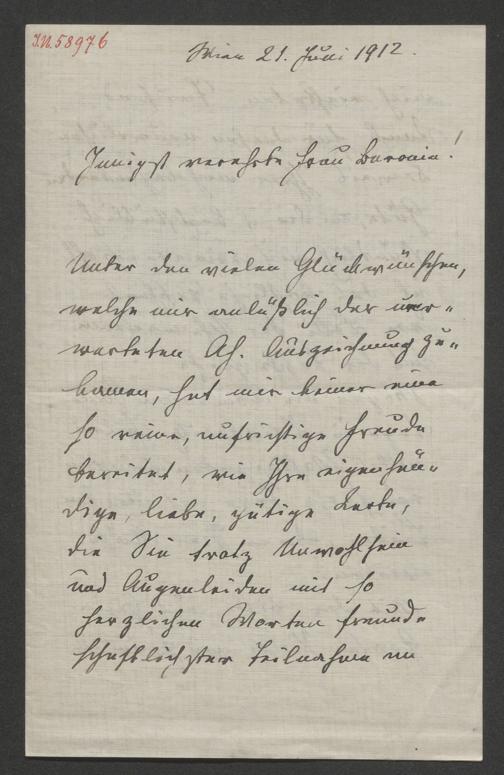 I.N. 58976
Wien 21. Juni 1912.
Innigst verehrte Frau Baronin!
Unter den vielen Glückwünschen,
welche mir anläßlich der uner-
warteten Ah. Auszeichnung zu-
kamen, hat mir keiner eine
so reine, aufrichtige Freude
bereitet, wie Ihre eigenhän-
dige, liebe, gütige Karte,
die Sie trotz Unwohlsein
und Augenleiden mit so
herzlichen Worten freund-
schaftlichster Teilnahme an